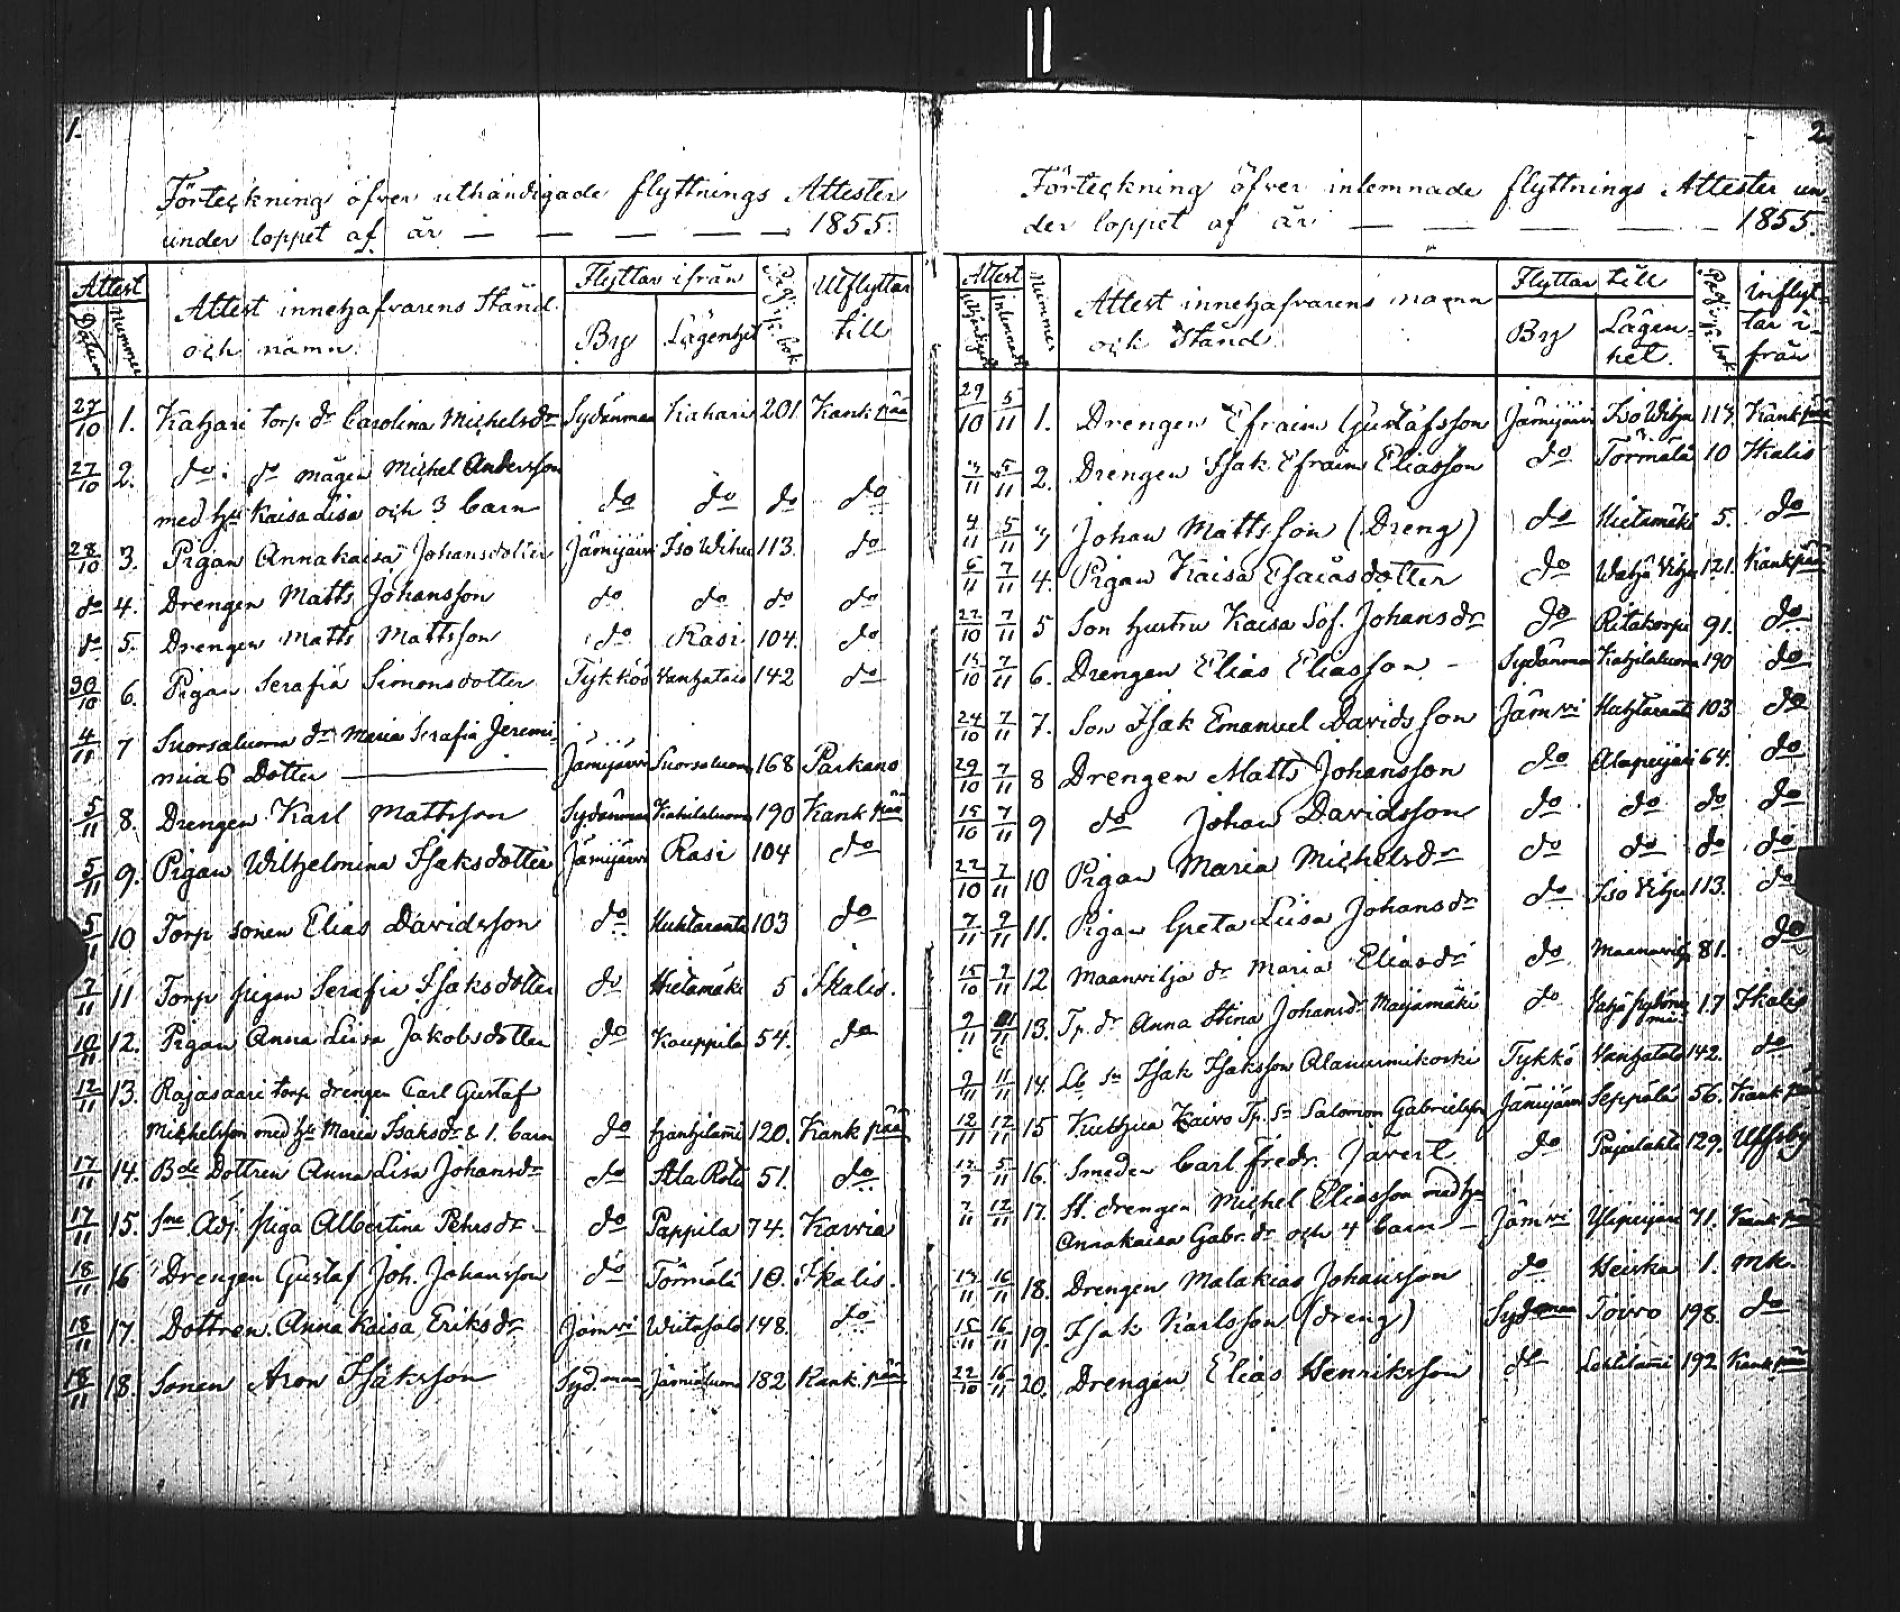 1.
Förteckning öfver uthändigade flyttnings Attester
under loppet af år — — — — — 1855.
Attest
Datum
Nummer
Attest innehafvarens Stånd
och namn.
Flyttar ifrån
By
Lägenhet
Pag. i k. bok
Utflyttar
till
27/10 1. Katjari torp dr Carolina Michelsdr Sydänmaa Kahari 201. Kankpää
27/10 2. do do mågen Michel Andersson
med hu Kaisa Lisa och 3 barn do do do do
28/10 3. Pigan Annakaisa Johansdotter Jämijärvi Iso Wihu 113. do
do 4. Drengen Matts Johansson do do do do
do 5. Drengen Matts Mattsson do Rasi 104. do
30/10 6. Pigan Serafia Simonsdotter Tykköö Vanhatalo 142 do
4/11 7 Suorsaluoma dr Maria Serafia Jeremi-
mias Dotter — Jämijärvi Suorsaluoma 168 Parkano
5/11 8. Drengen Karl Mattsson Sydänmaa Kahilaluoma 190 Kankpää
5/11 9. Pigan Wilhelmina Isaksdotter Jämijärvi Rasi 104 do
5/11 10 Torp sonen Elias Davidsson do Huhtaranta 103 do
7/11 11 Torp pigan Serafia Isaksdotter do Hietamäki 5 Ikalis.
10/11 12. Pigan Anna Lisa Jakobsdotter do Kauppila 54. do
12/11 13. Rajasaari torp drengen Carl Gustaf
Mikhelsson med hu Maria Isaksdr & 1. barn do hanhilami 120. Kankpää
17/11 14. Bde Dottren Anna Lisa Johansdr do Ala Röti 51. do
17/11 15. Sne Adj. piga Albertina Pehrsdr do Pappila 74. Karvia
18/11 16 Drengen Gustaf Joh. Johansson do Törmälä 10. Ikalis.
18/11 17. Dottren Anna Kaisa Eriksdr Jämvi Wiitasalo 148. do
18/11 18. Sonen Aron Isaksson Syd.maa Jämiäluoma 182 Kank.pää
2
Förteckning öfver inlemnade flyttnings Attester un-
der loppet af år — — — — — 1855.
Attest
Uthändigad
Inlemnad
Nummer
Attest innehafvarens namn
och Stånd
Flyttar till
By
Lägen-
het.
Pag. i k. bok
Inflyt-
tar i-
från
29/10 5/11 1. Drengen Efraim Gustafsson Jämijärvi Iso Wihu 114. Kankpää
5/11 2. Drengen Isak Efraim Eliasson do Törmälä 10 Ikalis
4/11 5/11 3 Johan Mattsson (Dreng) do Hietamäki 5. do
6/11 7/11 4. Pigan Kaisa Esaiasdotter do Wähä Vihu 121. Kankpää
22/10 7/11 5 Son hustru Kaisa Sof. Johansdr do Ritakorpi 91. do
15/10 7/11 6. Drengen Elias Eliasson - Sydänmaa Kahilaluoma 190 do
24/10 7/11 7. Son Isak Emanuel Davidsson Jämvi Huhtaranta 103 do
29/10 7/11 8 Drengen Matts Johansson do Alapeijari 64. do
15/10 7/11 9 do Johan Davidsson do do do do
22/10 7/11 10 Pigan Maria Michelsdr do do do do
7/11 9/11 11. Pigan Greta Lisa Johansdr do Iso Vihu 113. do
15/10 9/11 12 Maanvilja dr Maria Eliasdr do Maanvilja 81. do
9/11 11/11 13. Tp. dr Anna Stina Johansdr Marjamäki do 17 Ikalis
9/11 11/11 14. Lb. Sn Isak Isaksson Alanurmikoski Tykkö Vanhatalo 142. do
12/11 12/11 15 Kuthua Kaivo Tp. Sn Salomon Gabrielsson Jämijärvi Seppälä 56. Kankpää
5/11 16. Smeden Carl Fredr. Javert do Pajulahti 129. Ulfsby
7/11 12/11 17. St. drengen Michel Eliasson med hu
Annakaisa Gabr. dr och 4 barn - Jämvi Ylipeijari 71. Kankpää
14/11 16/11 18. Drengen Malakias Johansson do Heiska 1. mk.
15/11 16/11 19. Isak Karlsson (dreng) Sydmaa Toivo 198. do
22/10 16/11 20. Drengen Elias Henriksson do Lehtilami 192 Kankpää